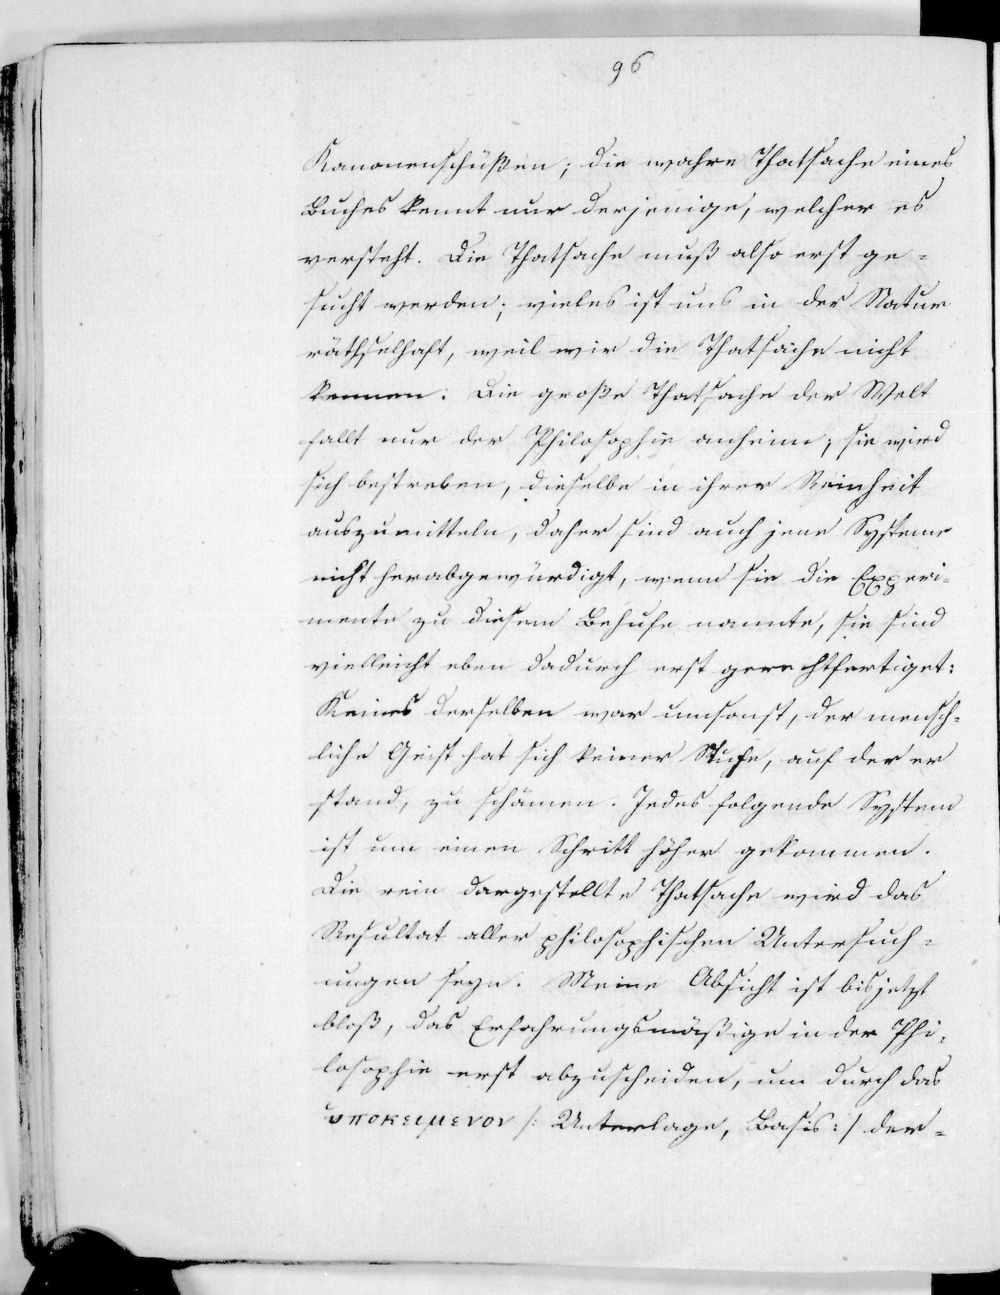 96
Kanonenschüßen; die wahre Thatsache eines
Buches kennt nur derjenige, welcher es
versteht. Die Thatsache muß also erst ge-
sucht werden; vieles ist uns in der Natur
räthselhaft, weil wir die Thatsache nicht
kennen: Die große Thatsache der Welt
fallt nur der Philosophie anheim; sie wird
sich bestreben, dieselbe in ihrer Reinheit
auszumitteln, daher sind auch jene Systeme
nicht herabgewürdigt, wenn sie die Experi-
mente zu diesem Behufe nannte, sie sind
vielleicht eben dadurch erst gerechtfertiget:
Keines derselben war umsonst, der mensch-
liche Geist hat sich keiner Stufe, auf der er
stand, zu schämen. Jedes folgende System
ist um einen Schritt höher gekommen.
Die rein dargestellte Thatsache wird das
Resultat aller philosophischen Untersuch-
ungen seyn. Meine Absicht ist bisjetzt
bloß, das Erfahrungsmäßige in der Phi-
losophie erst abzuscheiden, um durch das
ὑποκειμενον /: Unterlage, Basis :/ der-